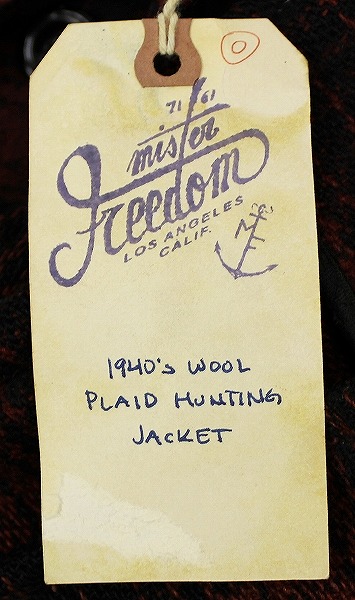 7161
mister
Freedom
LOS ANGELES
CALIF.
MF
1940's WOOL
PLAID HUNTING
JACKET